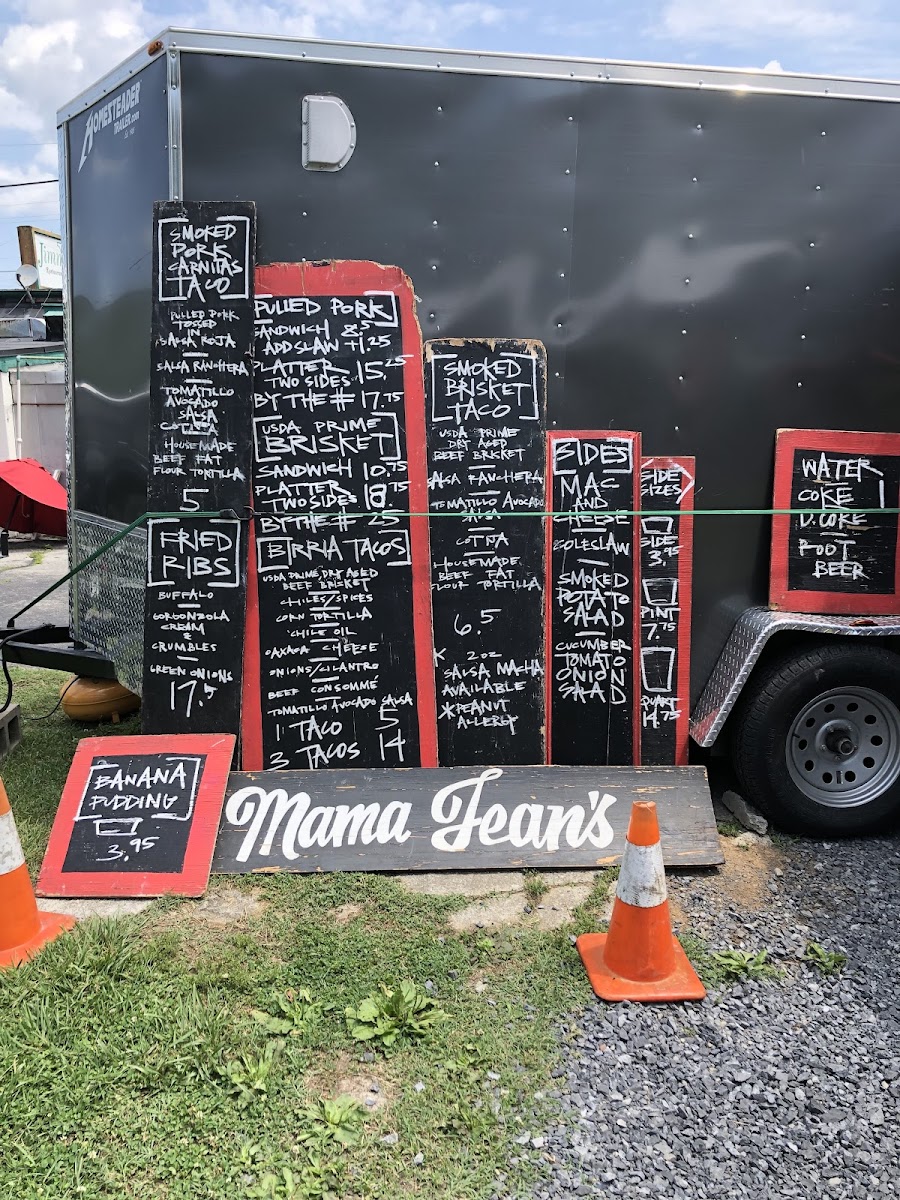 HOMESTEADER
TRAILER.com
SMOKED
PORK
CARNITAS
TACO
PULLED PORK
TOSSED
IN
SALSA ROJA
SALSA RANCHERA
TOMATILLO
AVOCADO
SALSA
COTIJA
HOUSEMADE
BEEF FAT
FLOUR TORTILLA
5
FRIED
RIBS
BUFFALO
GORGONZOLA
CREAM
&
CRUMBLES
GREEN ONIONS
17.5
PULLED PORK
SANDWICH 8.5
ADD SLAW +1.25
PLATTER 15.25
TWO SIDES
BY THE # 17.75
USDA PRIME
BRISKET
SANDWICH 10.75
PLATTER
TWO SIDES 18.75
BY THE # 25
BIRRIA TACOS
USDA PRIME, DRY AGED
BEEF BRISKET
CHILES/SPICES
CORN TORTILLA
CHILE OIL
OAXACA CHEESE
ONIONS/CILANTRO
BEEF CONSOMMÉ
TOMATILLO AVOCADO SALSA
1 TACO 5
3 TACOS 14
SMOKED
BRISKET
TACO
USDA PRIME
DRY AGED
BEEF BRISKET
SALSA RANCHERA
TOMATILLO AVOCADO
SALSA
COTIJA
HOUSEMADE
BEEF FAT
FLOUR TORTILLA
6.5
2OZ
SALSA MACHA
AVAILABLE
*PEANUT
ALLERGY
SIDES
MAC
AND
CHEESE
COLESLAW
SMOKED
POTATO
SALAD
CUCUMBER
TOMATO
ONION
SALAD
SIDE
SIZES
SIDE
3.95
PINT
7.75
QUART
14.75
WATER
COKE 1
D.COKE
ROOT
BEER
BANANA
PUDDING
3.95
Mama Jean's